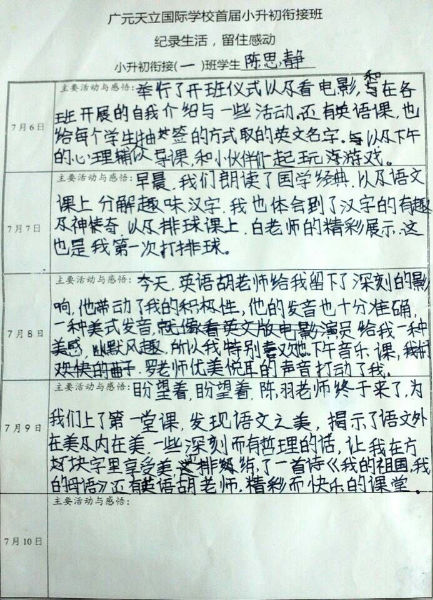 广元天立国际学校首届小升初衔接班
纪录生活，留住感动
小升初衔接(一)班学生陈思静
7月6日
主要活动与感悟：举行了开班仪式以及看电影,和在各
班开展的自我介绍与一些活动.还有英语课,也
给每个学生抽签的方式取的英文名字.与以及下午
的心理辅导课,和小伙伴们一起玩游戏.
7月7日
主要活动与感悟：早晨,我们朗读了国学经典,以及语文
课上分解趣味汉字.我也体会到了汉字的有趣
及神奇,以及排球课上.白老师的精彩展示.这
也是我第一次打排球。
7月8日
主要活动与感悟：今天,英语胡老师给我留下了深刻的影
响,他带动了我的积极性,他的发音也十分准确,
一种美式发音.就像看英文版电影演员给我一种
美感,幽默风趣.所以我特别喜欢她下午音乐课,我们
欢快的曲子.罗老师优美悦耳的声音打动了我。
7月9日
主要活动与感悟：盼望着,盼望着,陈羽老师终于来了,为
我们上了第一堂课,发现语文之美,揭示了语文外
在美及内在美.一些深刻而有哲理的话,让我在方
好块字里享受美 排练,了一首诗《我的祖国,我
的母语》还有英语胡老师.精彩而快乐的课堂.
7月10日
主要活动与感悟：